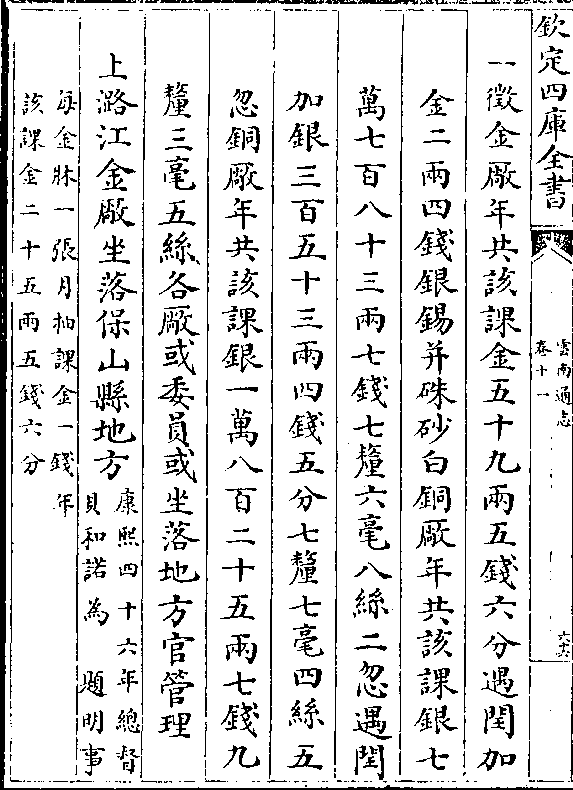 欽定四庫全書
雲南通志
卷十一
六六
一徵金厰年共該課金五十九兩五錢六分遇閏加
金二兩四錢銀錫并硃砂白銅厰年共該課銀七
萬七百八十三兩七錢七釐六毫八絲二忽遇閏
加銀三百五十三兩四錢五分七釐七毫四絲五
忽銅厰年共該課銀一萬八百二十五兩七錢九
釐三毫五絲各厰或委員或坐落地方官管理
上潞江金厰坐落保山縣地方
康熙四十六年總督
貝和諾為 題明事
每金牀一張月抽課金一錢年
該課金二十五兩五錢六分